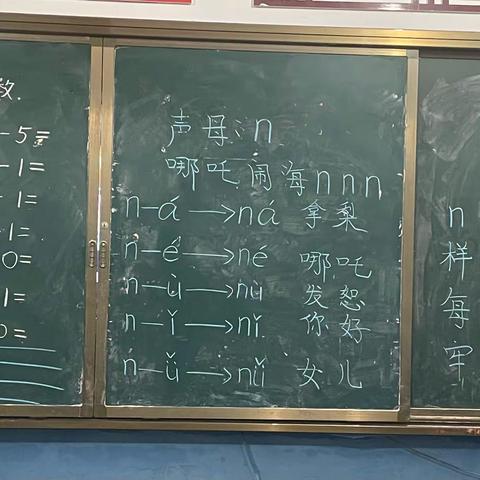 -5=
-1=
-1=
1=
0=
1=
0=
声母:n
哪吒闹海nnn
n—á→ná 拿梨
n—é→né 哪吒
n—ù→nù 发恕
n—ǐ→nǐ 你好
n—ǚ→nǚ 女儿
n
样
每